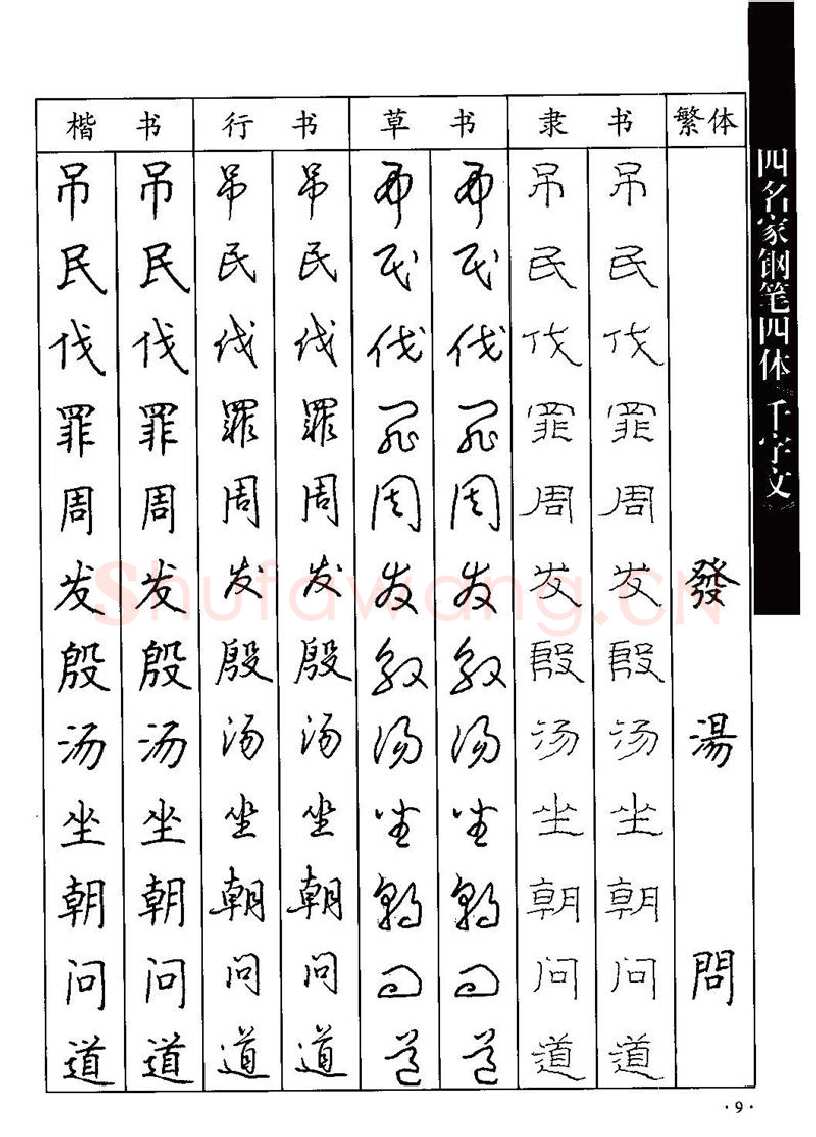 楷书 行书 草书 隶书 繁体
吊 吊 吊 吊 吊 吊 吊 吊
民 民 民 民 民 民 民 民
伐 伐 伐 伐 伐 伐 伐 伐
罪 罪 罪 罪 罪 罪 罪 罪
周 周 周 周 周 周 周 周
发 发 发 发 发 发 发 发 發
殷 殷 殷 殷 殷 殷 殷 殷
汤 汤 汤 汤 汤 汤 汤 汤 湯
坐 坐 坐 坐 坐 坐 坐 坐
朝 朝 朝 朝 朝 朝 朝 朝
问 问 问 问 问 问 问 问 問
道 道 道 道 道 道 道 道
四名家钢笔四体《千字文》
Shufawang.CN
·9·